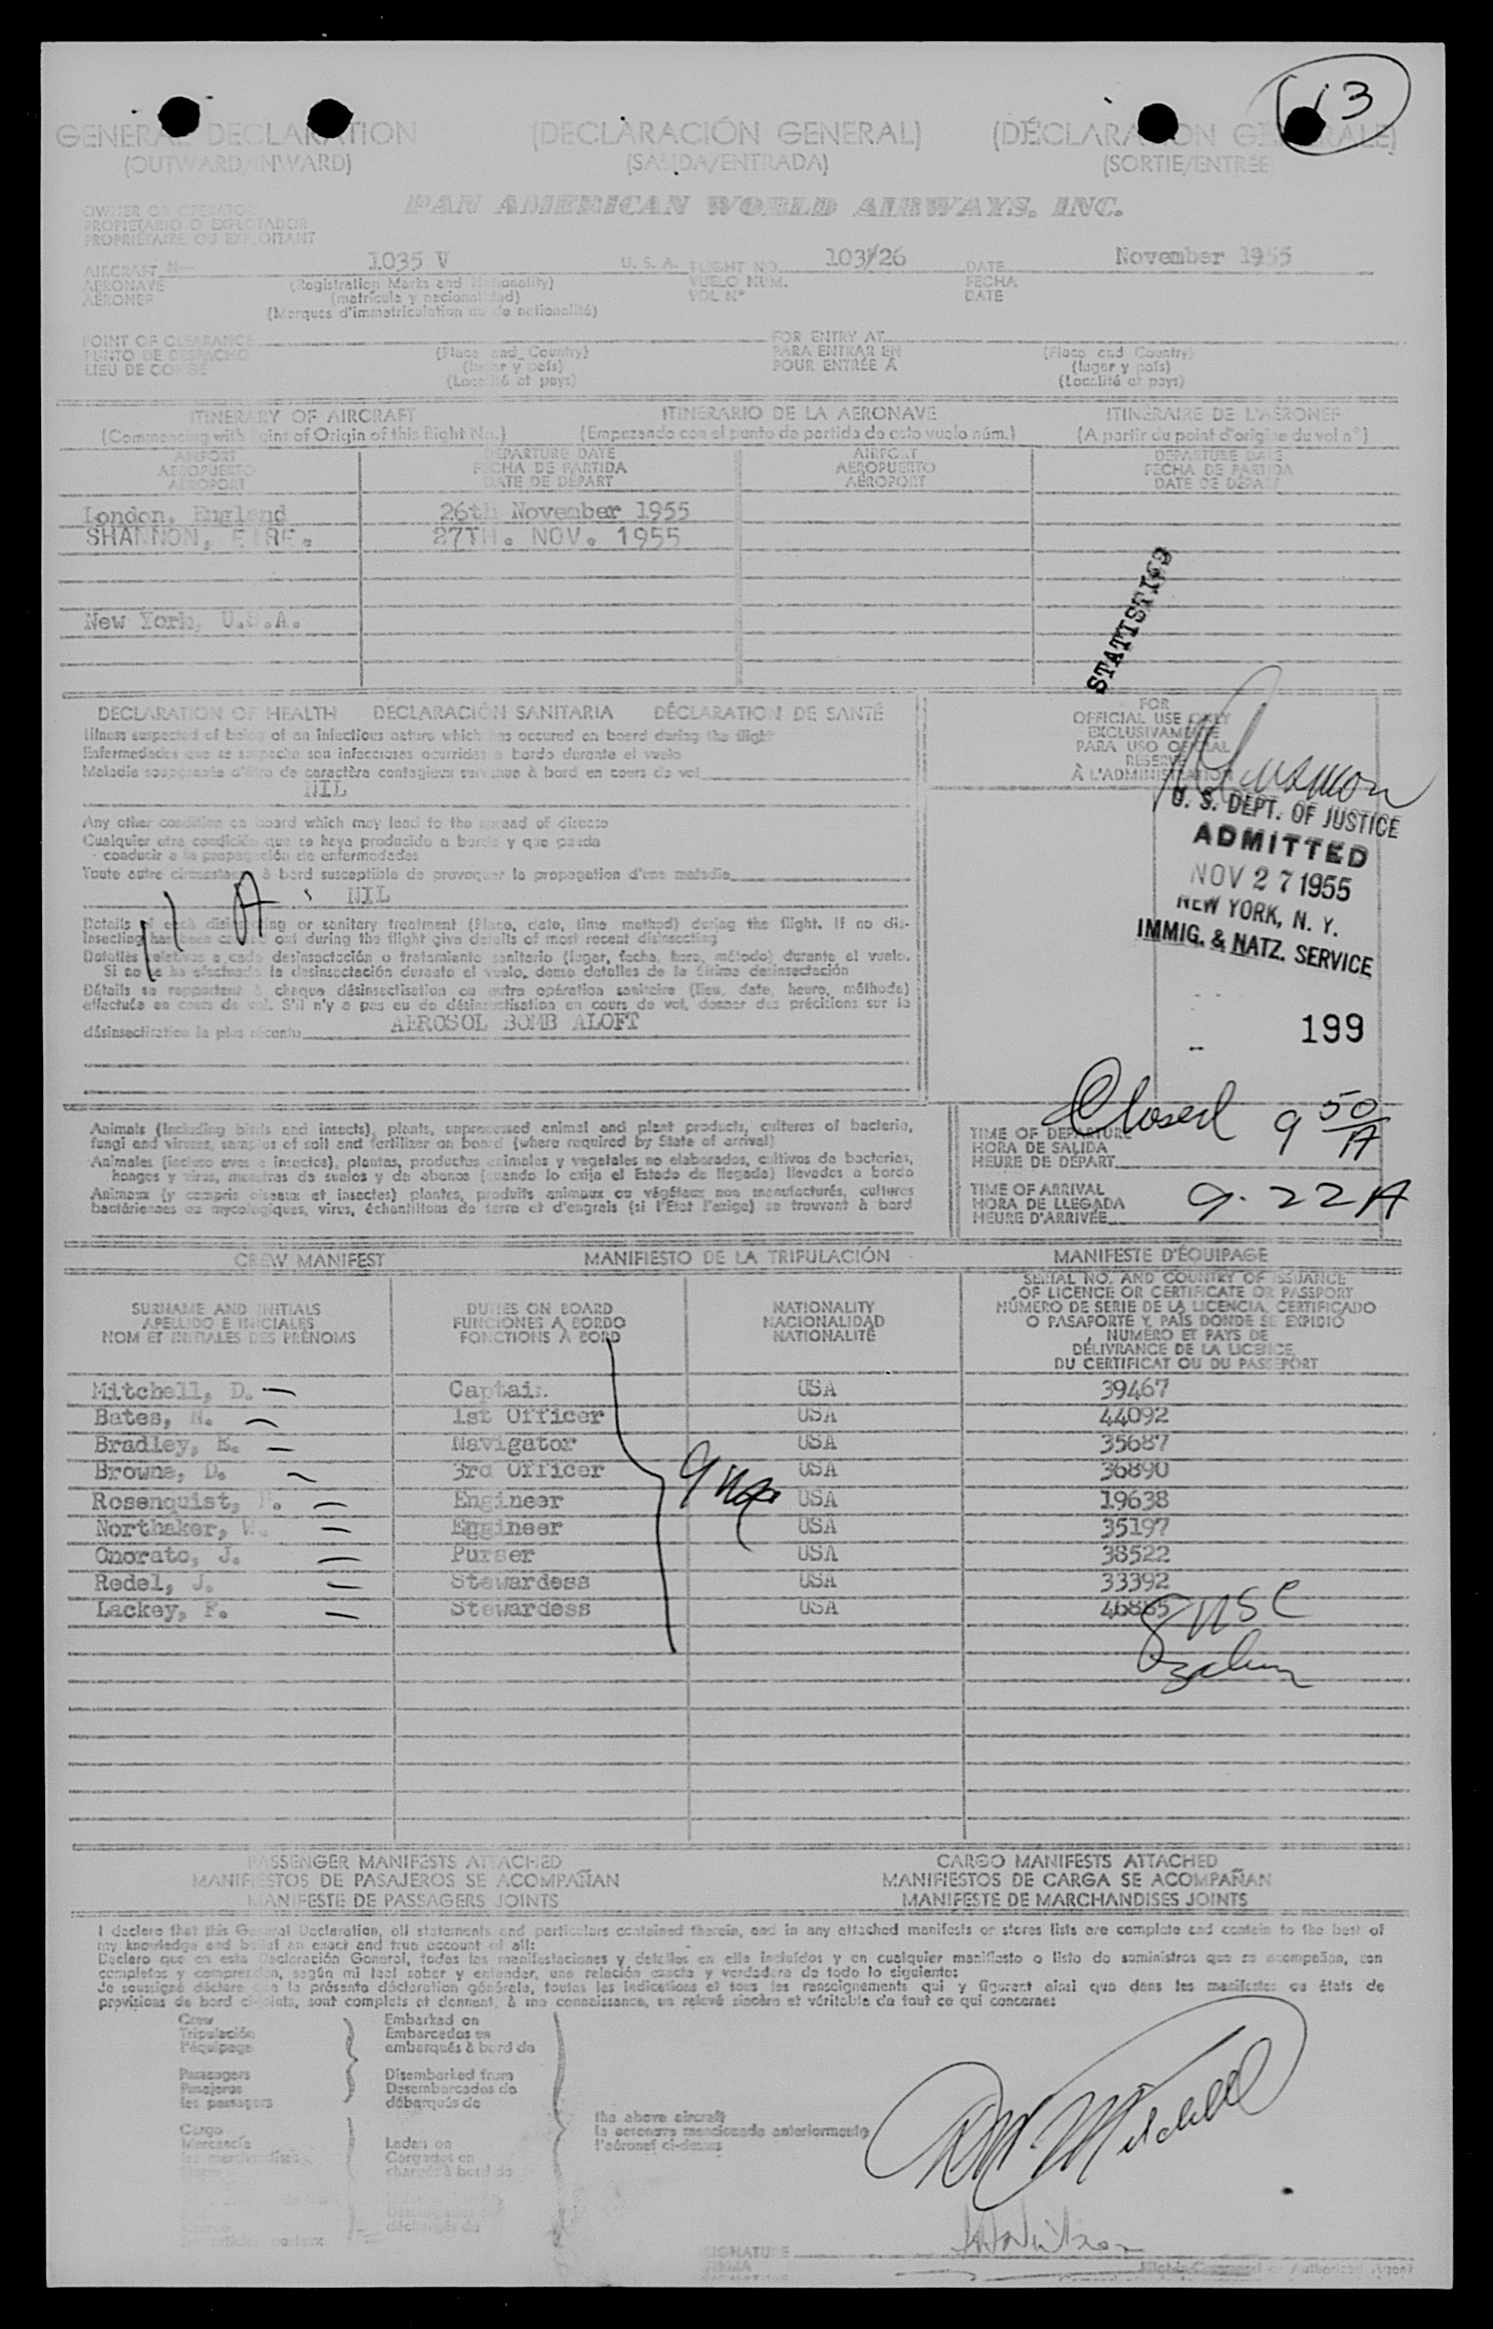 13
GENERAL DECLARATION (DECLARACIÓN GENERAL) (DÉCLARATION GÉNÉRALE)
(OUTWARD/INWARD) (SALIDA/ENTRADA) (SORTIE/ENTRÉE
OWNER OR OPERATOR PAN AMERICAN WORLD AIRWAYS, INC.
PROPIETARIO O EXPLOTADOR
PROPRIÉTAIRE OU EXPLOITANT
AIRCRAFT N 1035 V U. S. A. FLIGHT NO. 103/26 DATE November 1955
AERONAVE (Registration Marks and Nationality) VUELO NUM. FECHA
AÉRONEF (matrícula y nacionalidad) VOL N° DATE
(Marques d'immatriculation ou de nationalité)
POINT OF CLEARANCE FOR ENTRY AT
PUNTO DE DESPACHO (Place and Country) PARA ENTRAR EN (Place and Country)
LIEU DE CONGÉ (lugar y país) POUR ENTRÉE À (lugar y país)
(Localité et pays) (Localité et pays)
ITINERARY OF AIRCRAFT ITINERARIO DE LA AERONAVE ITINÉRAIRE DE L'AÉRONEF
(Commencing with Point of Origin of this flight No.) (Empezando con el punto de partida de este vuelo núm.) (A partir du point d'origine du vol n°)
AIRPORT DEPARTURE DATE AIRPORT DEPARTURE DATE
AEROPUERTO FECHA DE PARTIDA AEROPUERTO FECHA DE PARTIDA
AÉROPORT DATE DE DÉPART AÉROPORT DATE DE DÉPART
London, England 26th November 1955
SHANNON, EIRE. 27TH. NOV. 1955
STATISTICS
New York, U.S.A.
DECLARATION OF HEALTH DECLARACIÓN SANITARIA DÉCLARATION DE SANTÉ
Illness suspected of being of an infectious nature which has occured on board during the flight
Enfermedades que se sospecha son infecciosas ocurridas a bordo durante el vuelo
Maladie soupçonnée d'être de caractère contagieux survenue à bord en cours de vol
NIL
FOR
OFFICIAL USE ONLY
EXCLUSIVAMENTE
PARA USO OFICIAL
RESERVÉ
À L'ADMINISTRATION
Any other condition on board which may lead to the spread of disease
Cualquier otra condición que se haya producido a bordo y que pueda
conducir a la propagación de enfermedades
Toute autre circonstance à bord susceptible de provoquer la propagation d'une maladie
NIL
U. S. DEPT. OF JUSTICE
ADMITTED
NOV 27 1955
NEW YORK, N. Y.
IMMIG. & NATZ. SERVICE
199
Details of each disinsecting or sanitary treatment (Place, date, time method) during the flight. If no dis-
insecting has been carried out during the flight give details of most recent disinsecting
Detalles relativos a cada desinsectación o tratamiento sanitario (lugar, fecha, hora, método) durante el vuelo.
Si no se ha efectuado la desinsectación durante el vuelo, dense detalles de la última desinsectación
Détails se rapportant à chaque désinsectisation ou autre opération sanitaire (lieu, date, heure, méthode)
effectuée en cours de vol. S'il n'y a pas eu de désinsectisation en cours de vol, donner des précisions sur la
désinsectisation la plus récente AEROSOL BOMB ALOFT
Animals (including birds and insects), plants, unprocessed animal and plant products, cultures of bacteria,
fungi and viruses, samples of soil and fertilizer on board (where required by State of arrival)
Animales (incluso aves e insectos), plantas, productos animales y vegetales no elaborados, cultivos de bacterias,
hongos y virus, muestras de suelos y de abonos (cuando lo exija el Estado de llegada) llevados a bordo
Animaux (y compris oiseaux et insectes) plantes, produits animaux ou végétaux non manufacturés, cultures
bactériennes ou mycologiques, virus, échantillons de terre et d'engrais (si l'État l'exige) se trouvant à bord
Closed 9 50/A
TIME OF DEPARTURE
HORA DE SALIDA
HEURE DE DÉPART
TIME OF ARRIVAL 9.22A
HORA DE LLEGADA
HEURE D'ARRIVÉE
CREW MANIFEST MANIFIESTO DE LA TRIPULACIÓN MANIFESTE D'ÉQUIPAGE
SURNAME AND INITIALS DUTIES ON BOARD NATIONALITY
APELLIDO E INICIALES FUNCIONES A BORDO NACIONALIDAD
NOM ET INITIALES DES PRÉNOMS FONCTIONS À BORD NATIONALITÉ
SERIAL NO. AND COUNTRY OF ISSUANCE
OF LICENCE OR CERTIFICATE OR PASSPORT
NÚMERO DE SERIE DE LA LICENCIA, CERTIFICADO
O PASAPORTE Y PAÍS DONDE SE EXPIDIÓ
NUMÉRO ET PAYS DE
DÉLIVRANCE DE LA LICENCE,
DU CERTIFICAT OU DU PASSEPORT
Mitchell, D. Captain USA 39467
Bates, 1st Officer USA 44092
Bradley, E. Navigator USA 35687
Browne, D. 3rd Officer USA 36890
Rosenquist, Engineer USA 19638
Northaker, W. Engineer USA 35197
Onorato, J. Purser USA 38522
Redel, J. Stewardess USA 33392
Lackey, F. Stewardess USA 46885
8 USC
PASSENGER MANIFESTS ATTACHED CARGO MANIFESTS ATTACHED
MANIFIESTOS DE PASAJEROS SE ACOMPAÑAN MANIFIESTOS DE CARGA SE ACOMPAÑAN
MANIFESTE DE PASSAGERS JOINTS MANIFESTE DE MARCHANDISES JOINTS
I declare that this General Declaration, all statements and particulars contained therein, and in any attached manifests or stores lists are complete and contain to the best of
my knowledge and belief an exact and true account of all:
Declaro que en esta Declaración General, todas las manifestaciones y detalles en ella incluídos y en cualquier manifiesto o lista de suministros que se acompañan, son
completos y comprenden, según mi leal saber y entender, una relación exacta y verdadera de todo lo siguiente:
Je soussigné déclare que la présente déclaration générale, toutes les indications et tous les renseignements qui y figurent ainsi que dans les manifestes ou états de
provisions de bord ci-joints, sont complets et donnent, à ma connaissance, un relevé sincère et véritable de tout ce qui concerne:
Crew Embarked on
Tripulación Embarcados en
l'équipage embarqués à bord de
Passengers Disembarked from
Pasajeros Desembarcados de
les passagers débarqués de
the above aircraft
la aeronave mencionada anteriormente
l'aéronef ci-dessus
Cargo
Mercancía Laden on
les marchandises Cargados en
chargés à bord de
déchargés de
D M Mitchell
SIGNATURE
FIRMA
or Authorized Agent